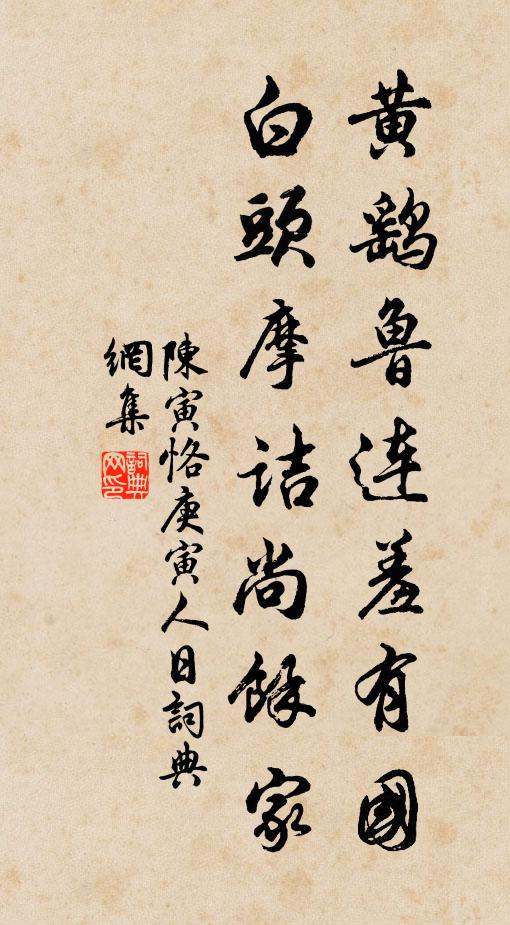 黃鷂魯連羞有國
白頭摩詰尚餘家
陳寅恪庚寅人日詞典
網集
詞典
网印